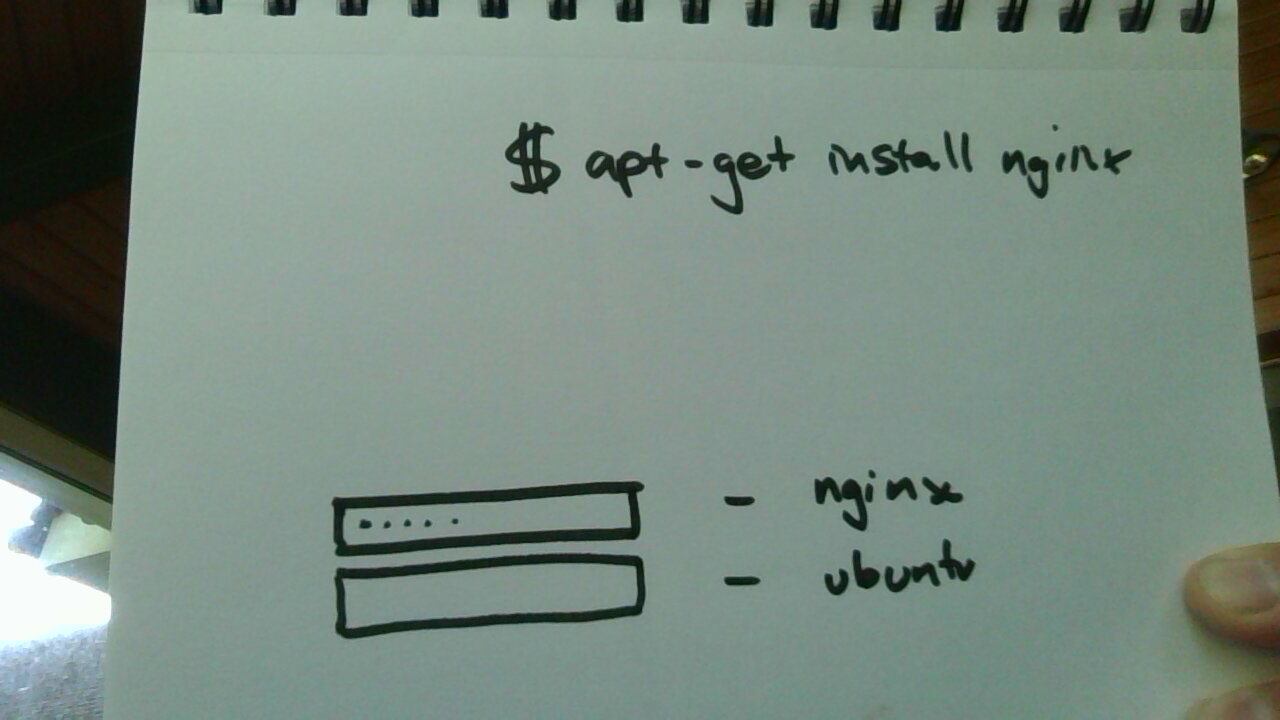 $ apt-get install nginx
- nginx
- ubuntu